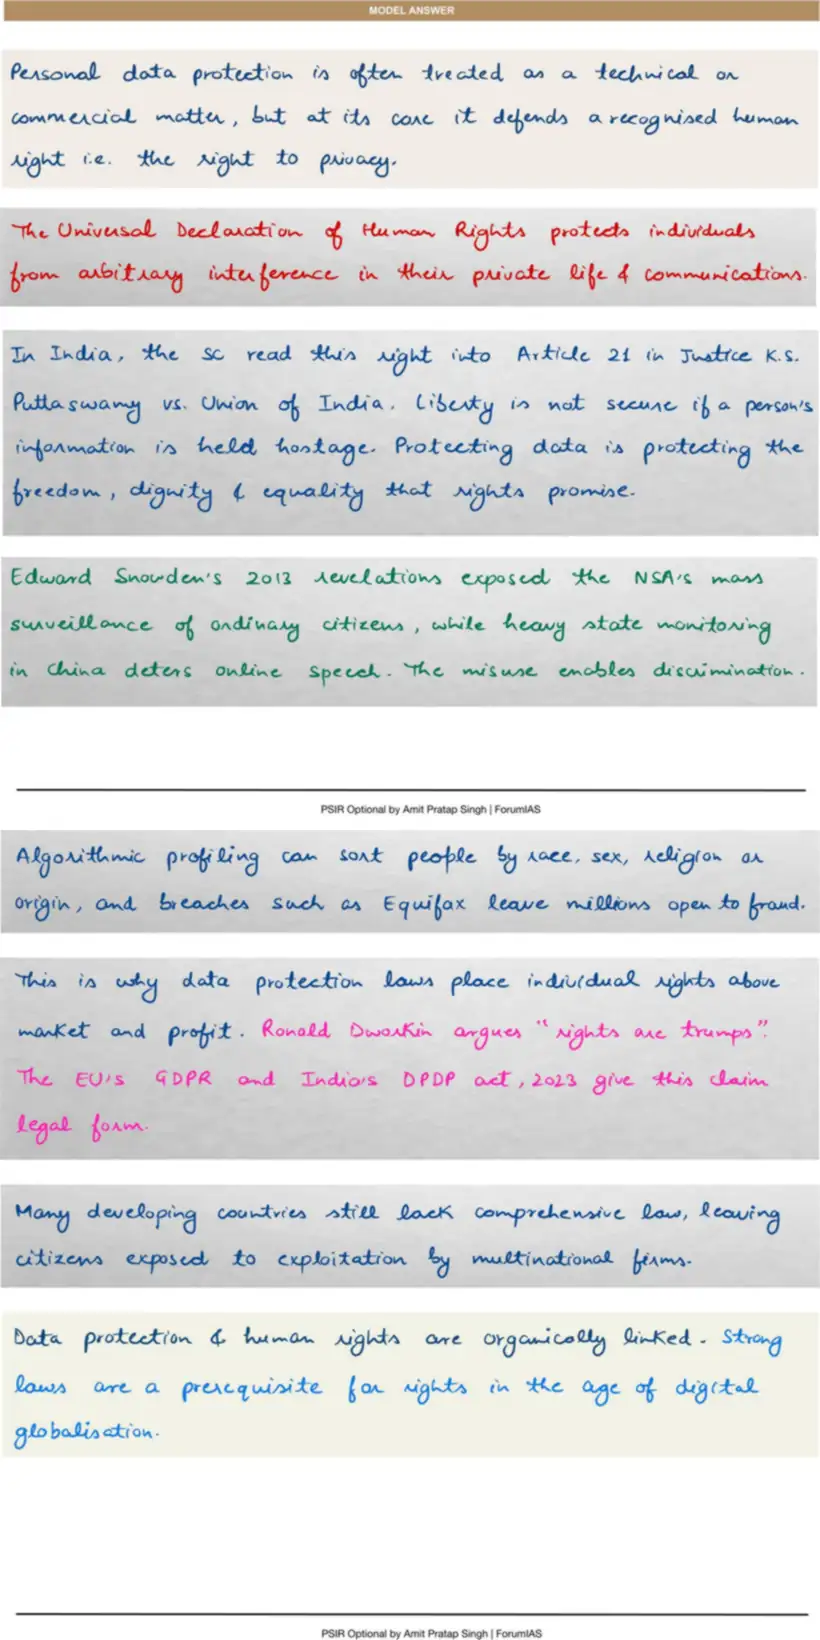 MODEL ANSWER
Personal data protection is often treated as a technical or
commercial matter, but at its core it defends a recognised human
right i.e. the right to privacy.
The Universal Declaration of Human Rights protects individuals
from arbitrary interference in their private life & communications.
In India, the SC read this right into Article 21 in Justice K.S.
Puttaswamy vs. Union of India. Liberty is not secure if a person's
information is held hostage. Protecting data is protecting the
freedom, dignity & equality that rights promise.
Edward Snowden's 2013 revelations exposed the NSA's mass
surveillance of ordinary citizens, while heavy state monitoring
in China deters online speech. The misuse enables discrimination.
PSIR Optional by Amit Pratap Singh | ForumIAS
Algorithmic profiling can sort people by race, sex, religion or
origin, and breaches such as Equifax leave millions open to fraud.
This is why data protection laws place individual rights above
market and profit. Ronald Dworkin argues "rights are trumps".
The EU's GDPR and India's DPDP act, 2023 give this claim
legal form.
Many developing countries still lack comprehensive law, leaving
citizens exposed to exploitation by multinational firms.
Data protection & human rights are organically linked. Strong
laws are a prerequisite for rights in the age of digital
globalisation.
PSIR Optional by Amit Pratap Singh | ForumIAS